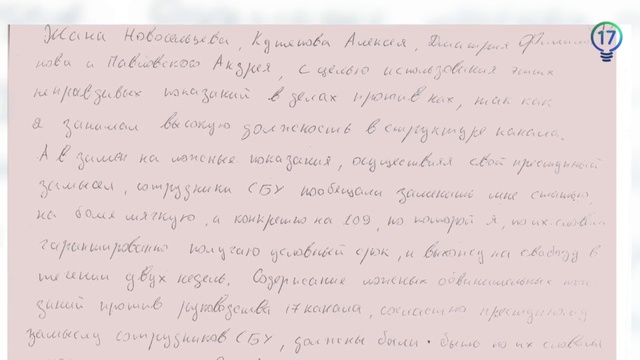 17
Жана Новосельцева, Кутепова Алексея, Дмитрия Филимо
нова и Павловского Андрея, с целью использования этих
неправдивых показаний в делах против них, так как
я занимал высокую должность в структуре канала.
А в замен на ложные показания, осуществляя свой преступный
замысел, сотрудники СБУ пообещали заменить мне статью,
на более мягкую, а конкретно на 109, по которой я, по их словам
гарантированно получаю условный срок, и выхожу на свободу в
течении двух недель. Содержание ложных обвинительных пока
заний против руководства 17 канала, согласно преступному
замыслу сотрудников СБУ, должны были по их словам